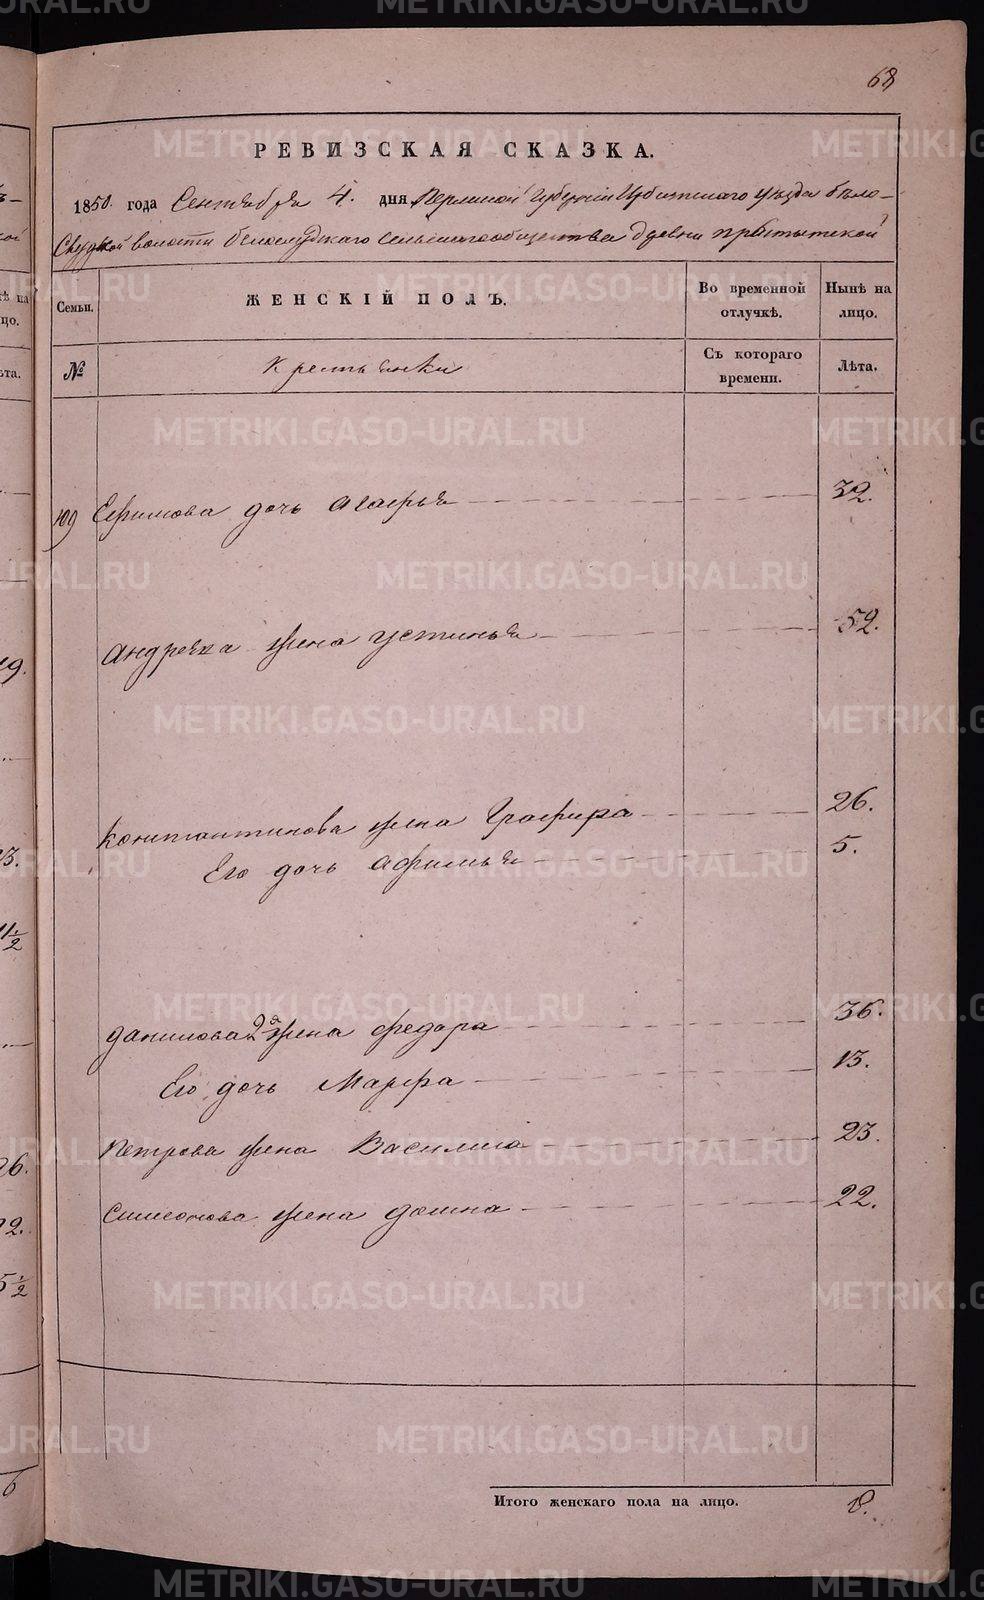 68
РЕВИЗСКАЯ СКАЗКА.
1850. года Сентября 4. дня Пермской Губерніи Ирбитского уезда бѣло-
Слудской волости белослудского сельскаго общества дрѣвни
Семьи.
ЖЕНСКІЙ ПОЛЪ.
Во временной отлучкѣ.
Нынѣ на лицо.
№
Крестьянки
Съ котораго времени.
Лѣта.
109 Ефимова дочь Агафья 32.
Андреяка жена Устинья 52.
Константинова жена Графира 26.
Его дочь Афимья 5.
Данилова 2я жена Федора 36.
Его дочь Марфа 13.
Петрова жена Василиса 23.
Симеонова жена Домна 22.
Итого женскаго пола на лицо. 8.
METRIKI.GASO-URAL.RU